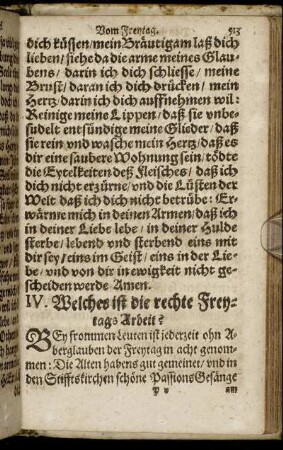 Vom Freytag. 513
dich küssen/mein Bräutigam laß dich
lieben/siehe da die arme meines Glau-
bens/darin ich dich schliesse/meine
Brust/daran ich dich drücken/mein
Hertz/darin ich dich auffnehmen wil:
Reinige meine Lippen/daß sie vnbe-
sudelt entsündige meine Glieder/daß
sie rein vnd wasche mein Hertz/daß es
dir eine saubere Wohnung sein/tödte
die Eytelkeiten deß Fleisches/daß ich
dich nicht erzürne/vnd die Lüsten der
Welt daß ich dich nicht betrübe: Er-
wärme mich in deinen Armen/daß ich
in deiner Liebe lebe/in deiner Hulde
sterbe/lebend vnd sterbend eins mit
dir sey/eins im Geist/eins in der Lie-
be/vnd von dir in ewigkeit nicht ge-
scheiden werde Amen.
IV. Welches ist die rechte Frey-
tags Arbeit?
BEy frommen Leuten ist jederzeit ohn A-
berglauben der Freytag in acht genom-
men: Die Alten habens gut gemeinet/vnd in
den Stifftskirchen schöne Passions Gesänge
am